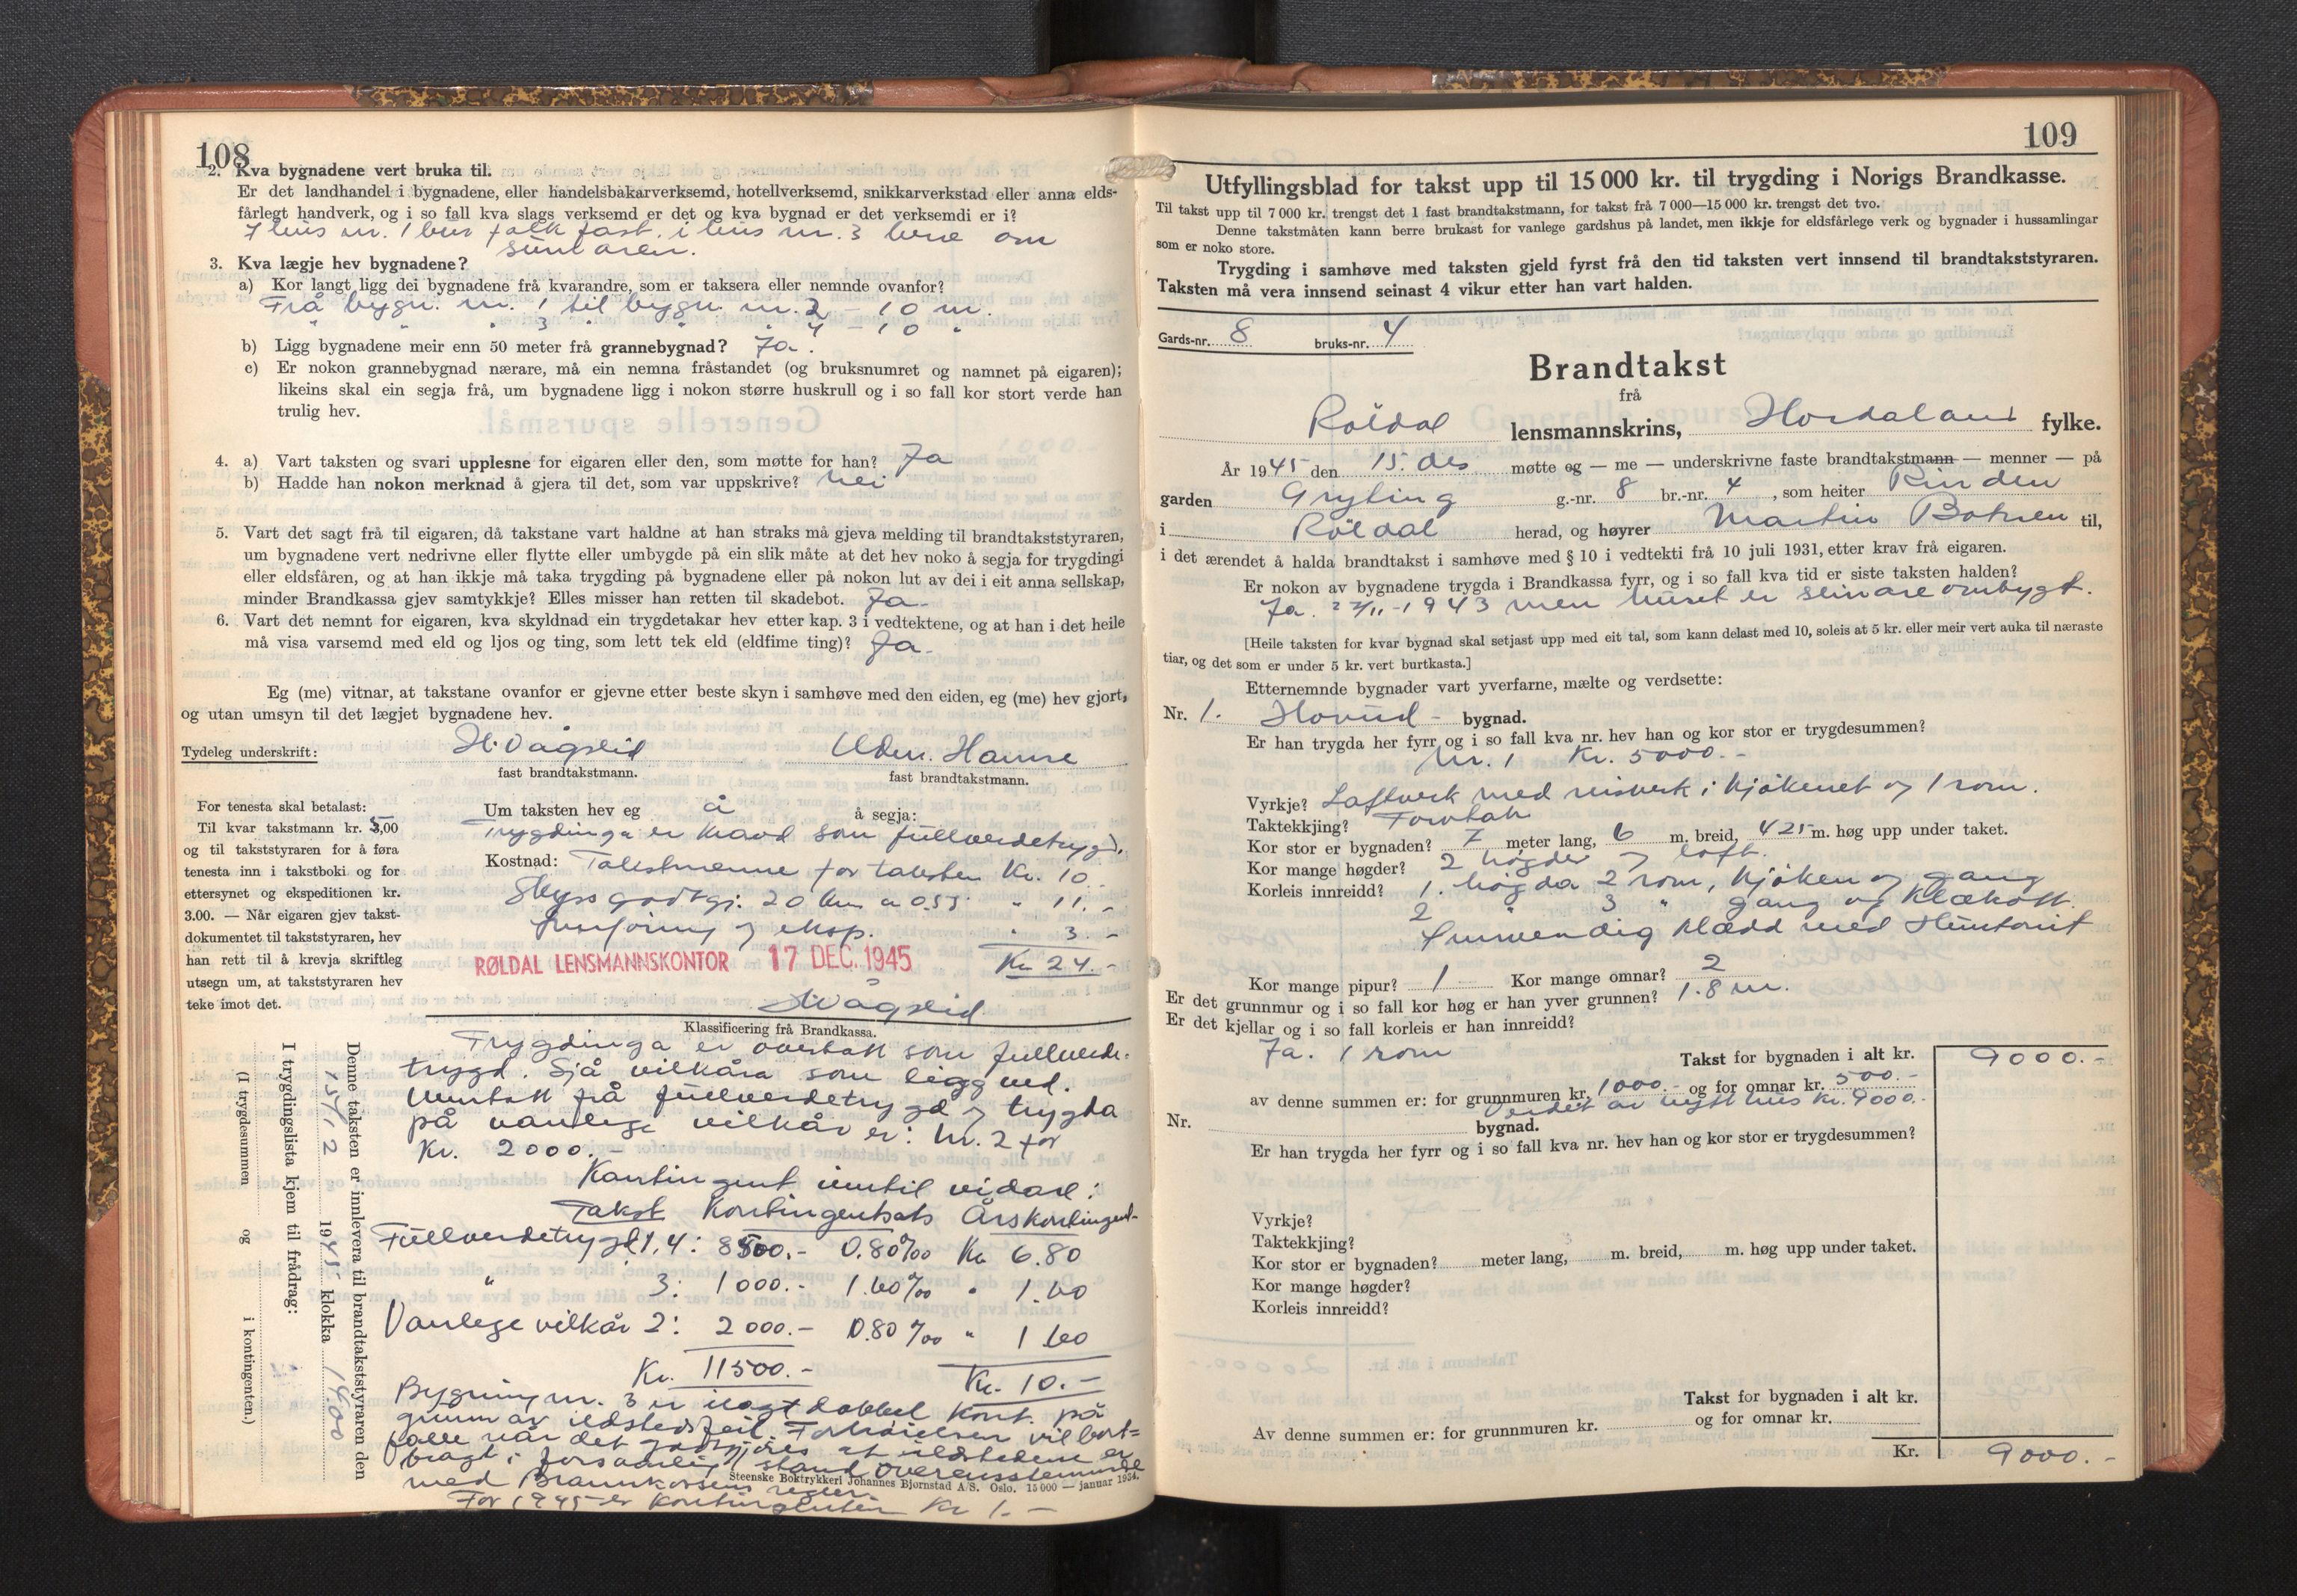 108
2. Kva bygnadene vert bruka til.
Er det landhandel i bygnadene, eller handelsbakarverksemd, hotellverksemd, snikkarverkstad eller anna elds-
fårlegt handverk, og i so fall kva slags verksemd er det og kva bygnad er det verksemdi er i?
I hus nr. 1 bur folk fast. i hus nr. 3 bere om
sumaren.
3. Kva lægje hev bygnadene?
a) Kor langt ligg dei bygnadene frå kvarandre, som er taksera eller nemnde ovanfor?
Frå bygn. nr. 1 til bygn. nr. 2 - 10 m.
" " " 3 " " " 4 - 10 "
b) Ligg bygnadene meir enn 50 meter frå grannebygnad? Ja.
c) Er nokon grannebygnad nærare, må ein nemna fråstandet (og bruksnumret og namnet på eigaren);
likeins skal ein segja frå, um bygnadene ligg i nokon større huskrull og i so fall kor stort verde han
trulig hev.
4. a) Vart taksten og svari upplesne for eigaren eller den, som møtte for han? Ja
b) Hadde han nokon merknad å gjera til det, som var uppskrive? Nei
5. Vart det sagt frå til eigaren, då takstane vart haldne at han straks må gjeva melding til brandtakststyraren,
um bygnadene vert nedrivne eller flytte eller umbygde på ein slik måte at det hev noko å segja for trygdingi
eller eldsfåren, og at han ikkje må taka trygding på bygnadene eller på nokon lut av dei i eit anna sellskap,
minder Brandkassa gjev samtykkje? Elles misser han retten til skadebot. Ja.
6. Vart det nemnt for eigaren, kva skyldnad ein trygdetakar hev etter kap. 3 i vedtektene, og at han i det heile
må visa varsemd med eld og ljos og ting, som lett tek eld (eldfime ting)? Ja.
Eg (me) vitnar, at takstane ovanfor er gjevne etter beste skyn i samhøve med den eiden, eg (me) hev gjort,
og utan umsyn til det lægjet bygnadene hev.
Tydeleg underskrift: H. Vågslid Adm. Hamre
fast brandtakstmann. fast brandtakstmann.
For tenesta skal betalast:
Til kvar takstmann kr. 5,00
og til takststyraren for å føra
tenesta inn i takstboki og for
ettersynet og ekspeditionen kr.
3.00. — Når eigaren gjev takst-
dokumentet til takststyraren, hev
han rett til å krevja skriftleg
utsegn um, at takststyraren hev
teke imot det.
Um taksten hev eg å å segja:
Trygdinga er kravd som fullverdetrygd.
Kostnad: Takstmenne for taksten Kr. 10.-
Skyssgodtgj. 20 km a 0.55 " 11.-
Innføring og eksp. " 3.-
RØLDAL LENSMANNSKONTOR 17 DEC. 1945 Kr 24.-
H Vågslid
Klassificering frå Brandkassa.
Trygdinga er overtatt som fullverde-
trygd. Sjå vilkåra som ligg ved.
Unntatt frå fullverdetrygd og trygda
på vanlege vilkår er: Nr. 2 for
Kr. 2000.-
Kontingent inntil vidare:
Takst Kontingentsats Årskontingent
Fullverdetrygd 1, 4: 8500.- 0.80‰ Kr 6.80
" 3: 1000.- 1.60‰ " 1.60
Vanlege vilkår 2: 2000.- 0.80‰ " 1.60
Kr. 11500.- Kr. 10.-
Bygning nr. 3 er ilagt dobbel kont. på
grunn av ildstedsfeil. Forhøielsen vil bort-
falle når det godtgjøres at ildstedene er
bragt i forsvarlig stand overensstemmende
med Brannkassens regler.
For 1945 er kontingenten Kr 1.-
Steenske Boktrykkeri Johannes Bjørnstad A/S. Oslo. 15 000 — januar 1934.
Denne taksten er innlevera til brandtakststyraren den
15/12 1945 klokka 14.00
I trygdingslista kjem til frådrag:
(I trygdesummen og i kontingenten.)
109
Utfyllingsblad for takst upp til 15 000 kr. til trygding i Norigs Brandkasse.
Til takst upp til 7 000 kr. trengst det 1 fast brandtakstmann, for takst frå 7 000—15 000 kr. trengst det tvo.
Denne takstmåten kann berre brukast for vanlege gardshus på landet, men ikkje for eldsfårlege verk og bygnader i hussamlingar
som er noko store.
Trygding i samhøve med taksten gjeld fyrst frå den tid taksten vert innsend til brandtakststyraren.
Taksten må vera innsend seinast 4 vikur etter han vart halden.
Gards-nr. 8 bruks-nr. 4
Brandtakst
frå
Röldal lensmannskrins, Hordaland fylke.
År 1945 den 15. des møtte og — me — underskrivne faste brandtakstmann — menner — på
garden Gryting g.-nr. 8 br.-nr. 4, som heiter Rinden
i Röldal herad, og høyrer Martin Botnen til,
i det ærendet å halda brandtakst i samhøve med § 10 i vedtekti frå 10 juli 1931, etter krav frå eigaren.
Er nokon av bygnadene trygda i Brandkassa fyrr, og i so fall kva tid er siste taksten halden?
Ja. 22/11-1943 men huset er seinare ombygt.
[Heile taksten for kvar bygnad skal setjast upp med eit tal, som kann delast med 10, soleis at 5 kr. eller meir vert auka til næraste
tiar, og det som er under 5 kr. vert burtkasta.]
Etternemnde bygnader vart yverfarne, mælte og verdsette:
Nr. 1. Hovud- bygnad.
Er han trygda her fyrr og i so fall kva nr. hev han og kor stor er trygdesummen?
Nr. 1 Kr. 5000.-
Vyrkje? Laftverk med reisverk i kjökenet og 1 rom.
Taktekkjing? Torvtak
Kor stor er bygnaden? 7 meter lang, 6 m. breid, 4 25 m. høg upp under taket.
Kor mange høgder? 2 högder og loft.
Korleis innreidd? 1. högda 2 rom, kjöken og gang
2 " 3 " gang og klækott.
Innvendig klædd med Huntonit
Kor mange pipur? 1 Kor mange omnar? 2
Er det grunnmur og i so fall kor høg er han yver grunnen? 1.8 m.
Er det kjellar og i so fall korleis er han innreidd?
Ja. 1 rom
Takst for bygnaden i alt kr. 9000.-
av denne summen er: for grunnmuren kr. 1000.- og for omnar kr. 500.-
Verdet av nytt hus kr. 9000.-
Nr. bygnad.
Er han trygda her fyrr og i so fall kva nr. hev han og kor stor er trygdesummen?
Vyrkje?
Taktekkjing?
Kor stor er bygnaden? meter lang, m. breid, m. høg upp under taket.
Kor mange høgder?
Korleis innreidd?
Takst for bygnaden i alt kr.
Av denne summen er: for grunnmuren kr. og for omnar kr.
Kr. 9000.-